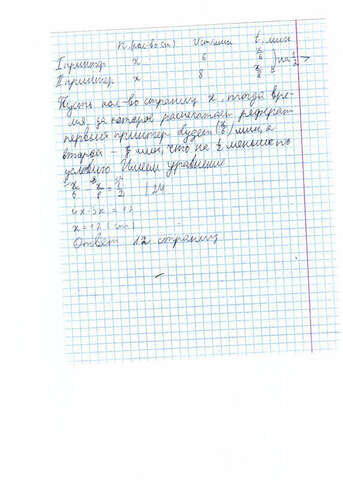 К (кол-во ст) V ст/мин t, мин
I принтер x 6 x/6
II принтер x 8 x/8 на 1/2 >
Пусть кол-во страниц x, тогда вре-
мя, за которое распечатает реферат
первый принтер будет (x/6) мин, а
второй - x/8 мин, что на 1/2 меньше по
условию. Имеем уравнение
x/6 - x/8 = 1/2 | 24
4x-3x = 12
x=12 (ст)
Ответ 12 страниц